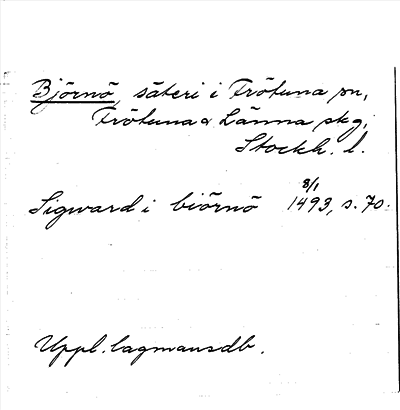 Björnö, säteri i Frötuna sn,
Frötuna o. Länna skg,
Stockh. l.
8/1
Sigward i biörnö 1493, s. 70.
Uppl. lagmansdb.